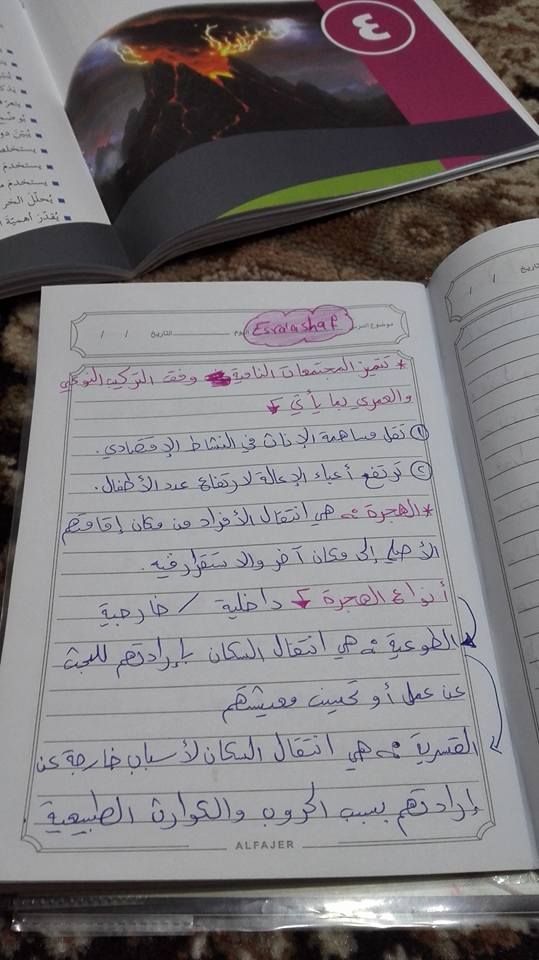 ٤
يستخدم
يستخدم
يُحلّل الخر
يُقدّر أهميّة ا
التاريخ / /
اليوم
Esraashaf
موضوع الدرس
التاريخ / /
* تتميز المجتمعات النامية وفق التركيب النوعي
والعمري بما يأتي ↓
① تقل مساهمة الإناث في النشاط الإقتصادي.
② ترتفع أعباء الإعالة لارتفاع عدد الأطفال.
* الهجرة :- هي انتقال الأفراد من مكان إقامتهم
الأصلي إلى مكان آخر والاستقرار فيه.
أنواع الهجرة ↓ داخلية / خارجية
الطوعية :- هي انتقال السكان بإرادتهم للبحث
عن عمل أو تحسين معيشتهم
القسرية :- هي انتقال السكان لأسباب خارجة عن
إرادتهم بسبب الحروب والكوارث الطبيعية
ALFAJER